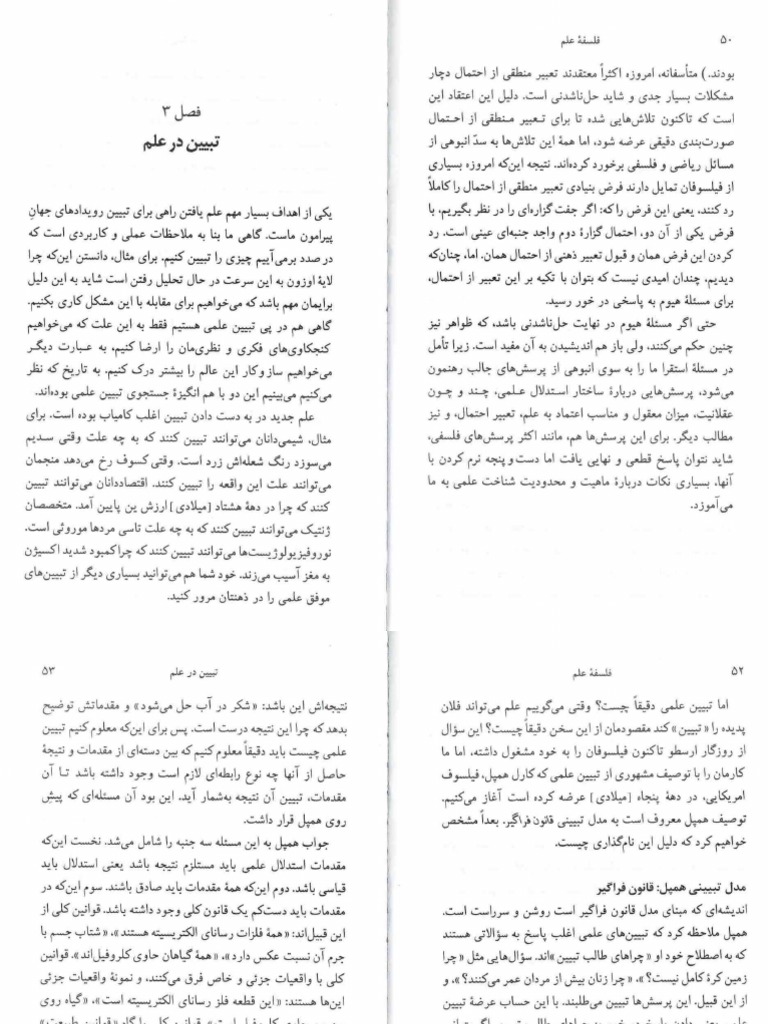 ۵۰
فلسفهٔ علم
بودند.) متأسفانه، امروزه اکثراً معتقدند تعبیر منطقی از احتمال دچار
مشکلات بسیار جدی و شاید حل‌ناشدنی است. دلیل این اعتقاد این
است که تاکنون تلاش‌هایی شده تا برای تعبیر منطقی از احتمال
صورت‌بندی دقیقی عرضه شود، اما همهٔ این تلاش‌ها به سدّ انبوهی از
مسائل ریاضی و فلسفی برخورد کرده‌اند. نتیجه این‌که امروزه بسیاری
از فیلسوفان تمایل دارند فرض بنیادی تعبیر منطقی از احتمال را کاملاً
رد کنند، یعنی این فرض را که: اگر جفت گزاره‌ای را در نظر بگیریم، با
فرض یکی از آن دو، احتمال گزارهٔ دوم واجد جنبه‌ای عینی است. رد
کردن این فرض همان و قبول تعبیر ذهنی از احتمال همان. اما، چنان‌که
دیدیم، چندان امیدی نیست که بتوان با تکیه بر این تعبیر از احتمال،
برای مسئلهٔ هیوم به پاسخی در خور رسید.
حتی اگر مسئلهٔ هیوم در نهایت حل‌ناشدنی باشد، که ظواهر نیز
چنین حکم می‌کنند، ولی باز هم اندیشیدن به آن مفید است. زیرا تأمل
در مسئلهٔ استقرا ما را به سوی انبوهی از پرسش‌های جالب رهنمون
می‌شود، پرسش‌هایی دربارهٔ ساختار استدلال علمی، چند و چون
عقلانیت، میزان معقول و مناسب اعتماد به علم، تعبیر احتمال، و نیز
مطالب دیگر. برای این پرسش‌ها هم، مانند اکثر پرسش‌های فلسفی،
شاید نتوان پاسخ قطعی و نهایی یافت اما دست‌وپنجه نرم کردن با
آنها، بسیاری نکات دربارهٔ ماهیت و محدودیت شناخت علمی به ما
می‌آموزد.
فصل ۳
تبیین در علم
یکی از اهداف بسیار مهم علم یافتن راهی برای تبیین رویدادهای جهانِ
پیرامون ماست. گاهی ما بنا به ملاحظات عملی و کاربردی است که
در صدد برمی‌آییم چیزی را تبیین کنیم. برای مثال، دانستن این‌که چرا
لایهٔ اوزون به این سرعت در حال تحلیل رفتن است شاید به این دلیل
برایمان مهم باشد که می‌خواهیم برای مقابله با این مشکل کاری بکنیم.
گاهی هم در پی تبیین علمی هستیم فقط به این علت که می‌خواهیم
کنجکاوی‌های فکری و نظری‌مان را ارضا کنیم، به عبارت دیگر
می‌خواهیم سازوکار این عالم را بیشتر درک کنیم. به تاریخ که نظر
می‌کنیم می‌بینیم این دو با هم انگیزهٔ جستجوی تبیین علمی بوده‌اند.
علم جدید در به دست دادن تبیین اغلب کامیاب بوده است. برای
مثال، شیمی‌دانان می‌توانند تبیین کنند که به چه علت وقتی سدیم
می‌سوزد رنگ شعله‌اش زرد است. وقتی کسوف رخ می‌دهد منجمان
می‌توانند علت این واقعه را تبیین کنند. اقتصاددانان می‌توانند تبیین
کنند که چرا در دههٔ هشتاد [میلادی] ارزش ین پایین آمد. متخصصان
ژنتیک می‌توانند تبیین کنند که به چه علت تاسی مردها موروثی است.
نوروفیزیولوژیست‌ها می‌توانند تبیین کنند که چرا کمبود شدید اکسیژن
به مغز آسیب می‌زند. خود شما هم می‌توانید بسیاری دیگر از تبیین‌های
موفق علمی را در ذهنتان مرور کنید.
۵۲
فلسفهٔ علم
اما تبیین علمی دقیقاً چیست؟ وقتی می‌گوییم علم می‌تواند فلان
پدیده را «تبیین» کند مقصودمان از این سخن دقیقاً چیست؟ این سؤال
از روزگار ارسطو تاکنون فیلسوفان را به خود مشغول داشته، اما ما
کارمان را با توصیف مشهوری از تبیین علمی که کارل همپل، فیلسوف
امریکایی، در دههٔ پنجاه [میلادی] عرضه کرده است آغاز می‌کنیم.
توصیف همپل معروف است به مدل تبیینی قانون فراگیر، بعداً مشخص
خواهیم کرد که دلیل این نام‌گذاری چیست.
مدل تبیینی همپل: قانون فراگیر
اندیشه‌ای که مبنای مدل قانون فراگیر است روشن و سرراست است.
همپل ملاحظه کرد که تبیین‌های علمی اغلب پاسخ به سؤالاتی هستند
که به اصطلاح خود او «چراهای طالب تبیین»اند. سؤال‌هایی مثل «چرا
زمین کرهٔ کامل نیست؟»، «چرا زنان بیش از مردان عمر می‌کنند؟»، و
از این قبیل. این پرسش‌ها تبیین می‌طلبند. با این حساب عرضهٔ تبیین
۵۳
تبیین در علم
نتیجه‌اش این باشد: «شکر در آب حل می‌شود» و مقدماتش توضیح
بدهد که چرا این نتیجه درست است. پس برای این‌که معلوم کنیم تبیین
علمی چیست باید دقیقاً معلوم کنیم که بین دسته‌ای از مقدمات و نتیجهٔ
حاصل از آنها چه نوع رابطه‌ای لازم است وجود داشته باشد تا آن
مقدمات، تبیین آن نتیجه به‌شمار آید. این بود آن مسئله‌ای که پیشِ
روی همپل قرار داشت.
جواب همپل به این مسئله سه جنبه را شامل می‌شد. نخست این‌که
مقدمات استدلال علمی باید مستلزم نتیجه باشد یعنی استدلال باید
قیاسی باشد. دوم این‌که همهٔ مقدمات باید صادق باشند. سوم این‌که در
مقدمات باید دست‌کم یک قانون کلی وجود داشته باشد. قوانین کلی از
این قبیل‌اند: «همهٔ فلزات رسانای الکتریسیته هستند»، «شتاب جسم با
جرم آن نسبت عکس دارد»، «همهٔ گیاهان حاوی کلروفیل‌اند». قوانین
کلی با واقعیات جزئی و خاص فرق می‌کنند، و نمونهٔ واقعیات جزئی
این‌ها هستند: «این قطعه فلز رسانای الکتریسیته است»، «گیاه روی